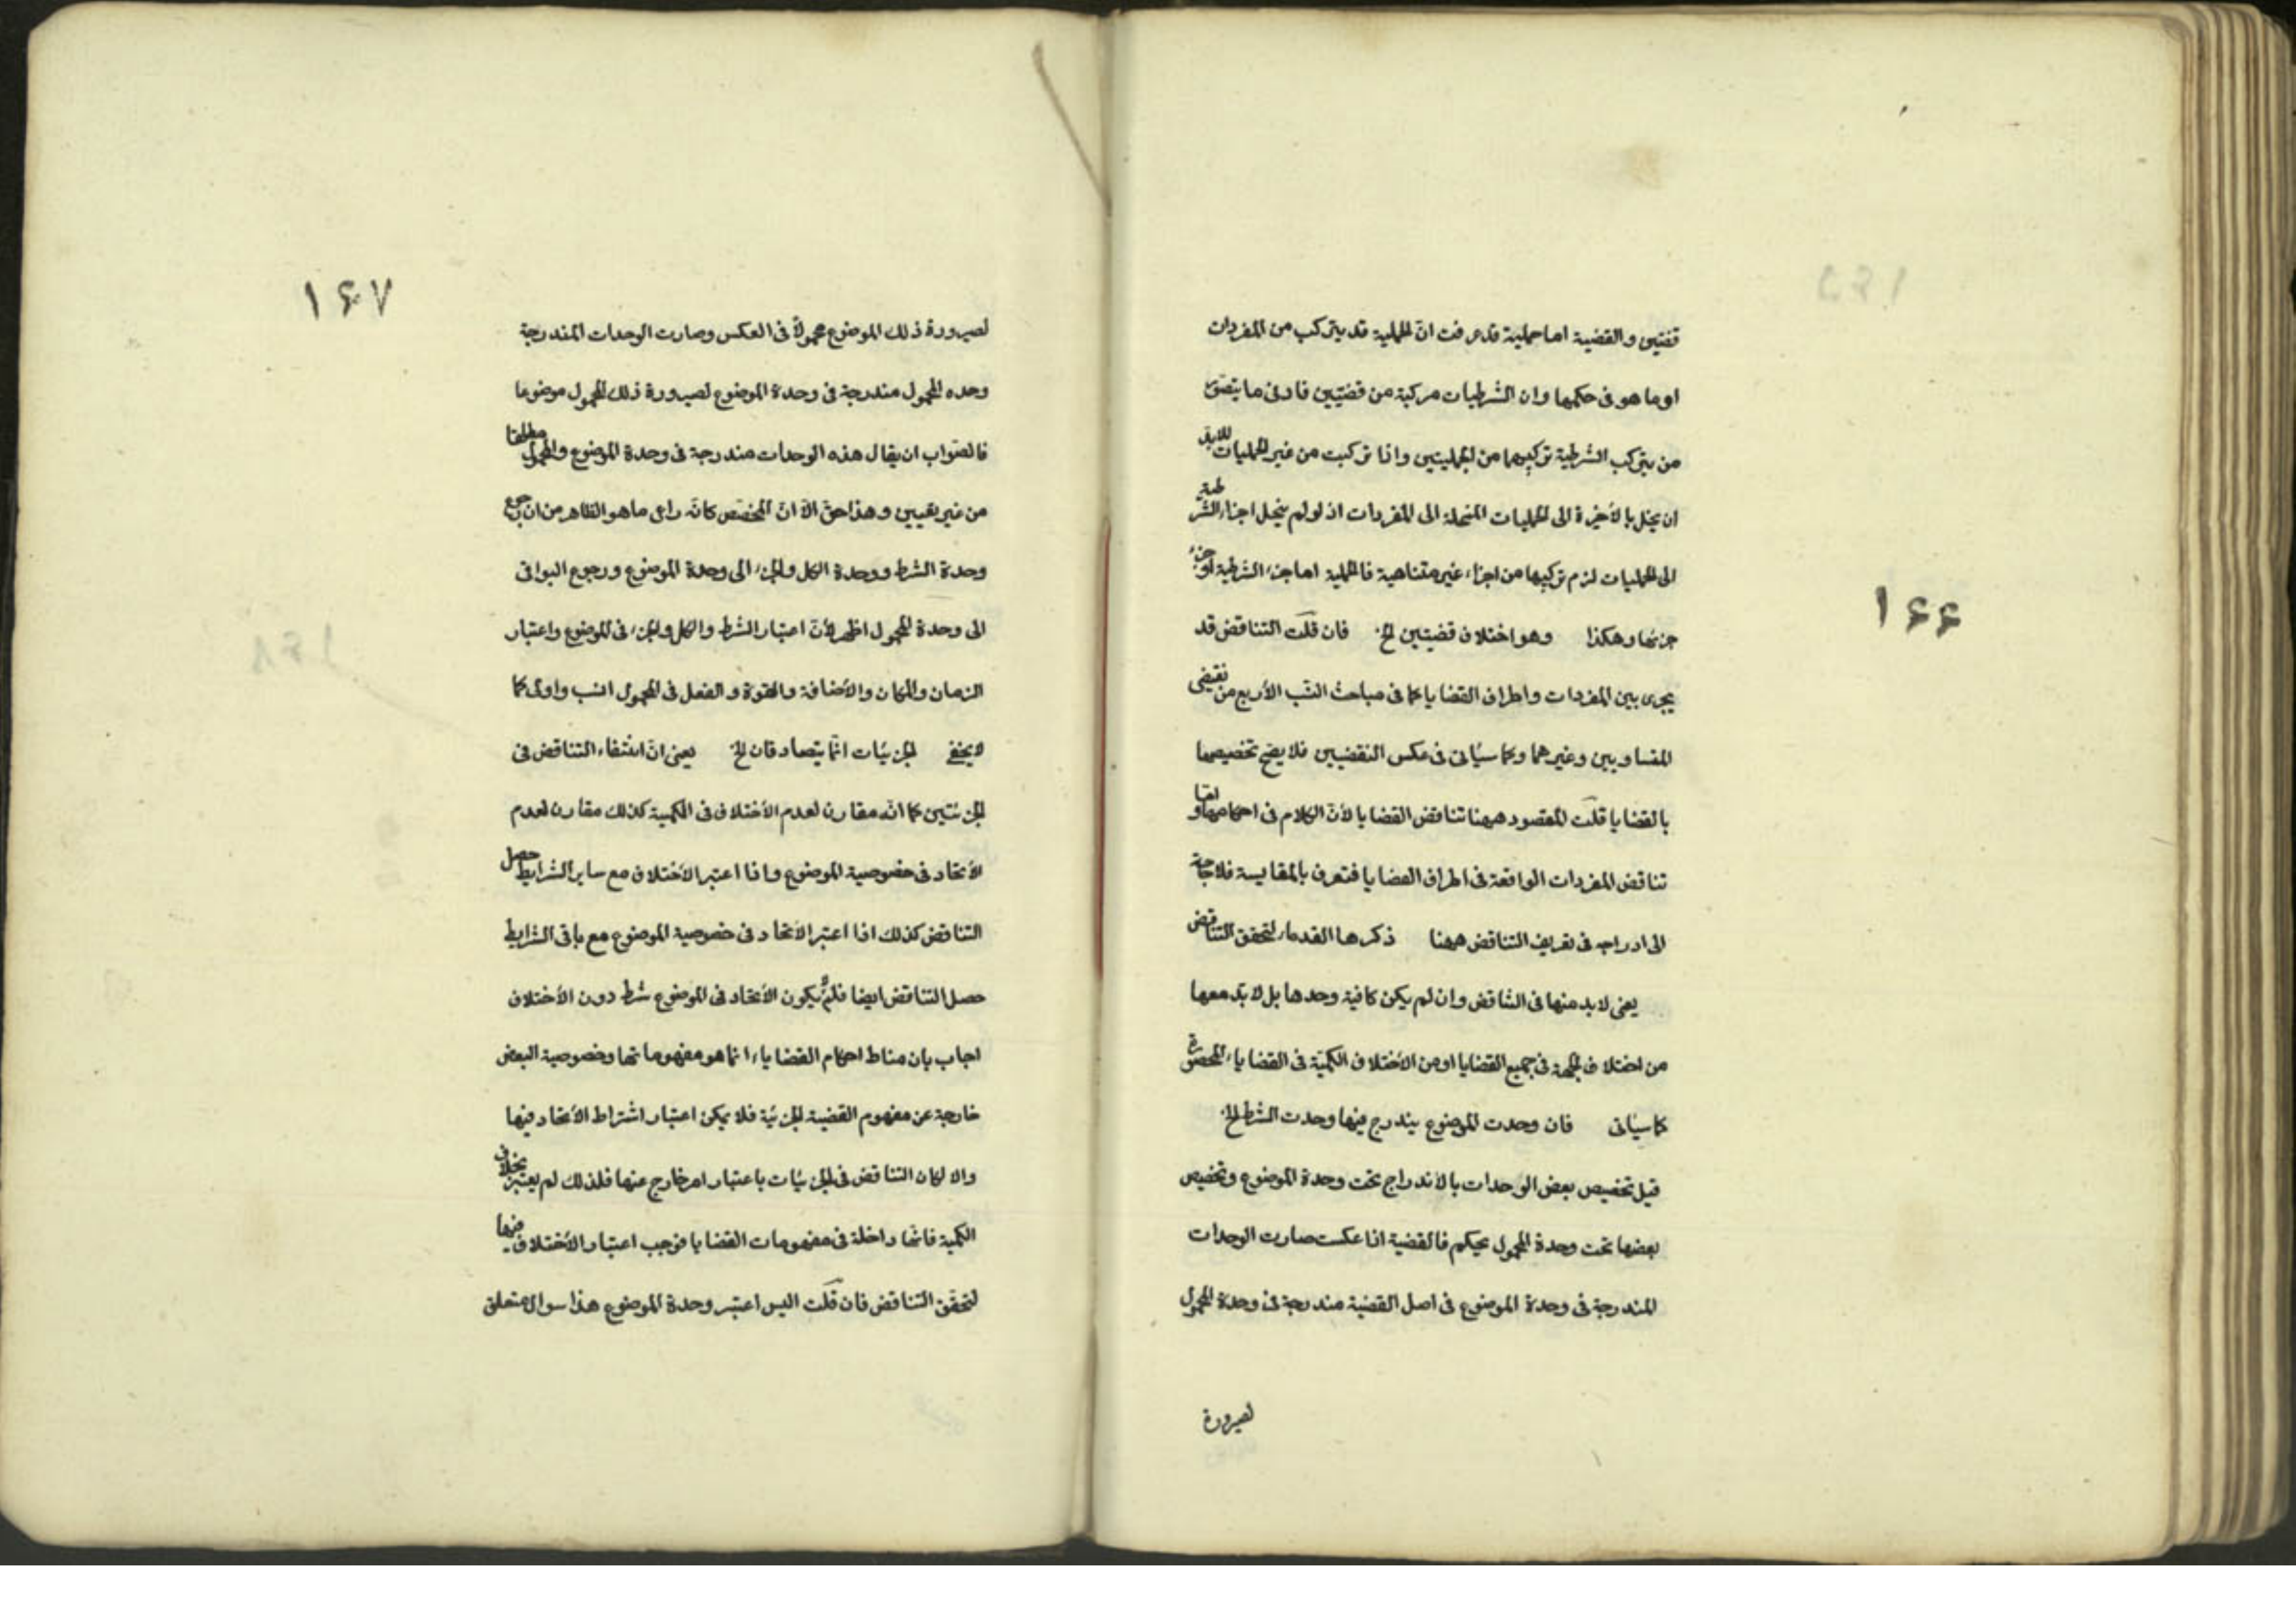 ١۶۶
قضيتين والقضية اما حملية قد عرفت ان الحملية قد يتركب من المفردات
او ما هو فى حكمها وان الشرطيات مركبة من قضيتين فادنى ما يتصور
من يتركب الشرطية تركيبها من الحمليتين واذا تركبت من غير الحمليات لابد
ان ينحل بالأخرة الى الحمليات المنحلة الى المفردات اذ لو لم ينحل اجزاء الشرطية
الى الحمليات لزم تركيبها من اجزاء غير متناهية فالحملية اما جزء الشرطية او جزء
جزئها وهكذا وهو اختلاف قضيتين الخ فان قلت التناقض قد
يجرى بين المفردات واطراف القضايا كما فى مباحث النسب الأربع من نقيضى
المتساويين وغيرهما وكما سيأتى فى عكس النقيضين فلا يصح تخصيصها
بالقضايا قلت المقصود ههنا تناقض القضايا لأن الكلام فى احكامها واما
تناقض المفردات الواقعة فى اطراف القضايا فتعرف بالمقايسة فلا حاجة
الى ادراجه فى تعريف التناقض ههنا ذكرها القدماء لتحقق التناقض
يعنى لابد منها فى التناقض وان لم يكن كافية وحدها بل لابد معها
من اختلاف الجهة فى جميع القضايا او من الأختلاف الكمية فى القضايا المحصورة
كما سيأتى فان وحدت الموضوع يندرج فيها وحدت الشرط الخ
قيل تخصيص بعض الوحدات بالأندراج تحت وحدة الموضوع وتخصيص
بعضها تحت وحدة المحمول تحكم فالقضية اذا عكست صارت الوحدات
المندرجة فى وحدة الموضوع فى اصل القضية مندرجة فى وحدة المحمول
لصيرورة
١۶٧
لصيرورة ذلك الموضوع محمولاً فى العكس وصارت الوحدات المندرجة
وحده المحمول مندرجة فى وحدة الموضوع لصيرورة ذلك المحمول موضوعا
فالصواب ان يقال هذه الوحدات مندرجة فى وحدة الموضوع والمحمول مطلقا
من غير تعيين وهذا حق الا ان المخصص كانه راى ما هو الظاهر من ان رجوع
وحدة الشرط ووحدة الكل والجزء الى وحدة الموضوع ورجوع البواقى
الى وحدة المحمول اظهر لأن اعتبار الشرط والكل والجزء فى الموضوع واعتبار
الزمان والمكان والأضافة والقوة والفعل فى المحمول انسب واولى كما
لا يخفى الجزئيات انما يتصادقان الخ يعنى ان انتفاء التناقض فى
الجزئيتين كما انه مقارن لعدم الأختلاف فى الكمية كذلك مقارن لعدم
الأتحاد فى خصوصية الموضوع واذا اعتبر الأختلاف مع ساير الشرايط حصل
التناقض كذلك اذا اعتبر الأتحاد فى خصوصية الموضوع مع باقى الشرايط
حصل التناقض ايضا فلم يكون الأتحاد فى الموضوع شرط دون الأختلاف
اجاب بان مناط احكام القضايا انما هو مفهوماتها وخصوصية البعض
خارجة عن مفهوم القضية الجزئية فلا يمكن اعتبار اشتراط الأتحاد فيها
والا لكان التناقض فى الجزئيات باعتبار امر خارج عنها فلذلك لم يعتبر بخلاف
الكمية فانها داخلة فى مفهومات القضايا فوجب اعتبار الأختلاف فيها
لتحقق التناقض فان قلت اليس اعتبر وحدة الموضوع هذا سوال متعلق